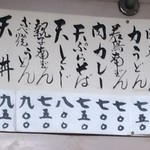 力うどん
若鶏南ばん
肉カレー
天ぷらそば
天とじ
親子南ばん
なべ焼うどん
天丼
七五〇
七〇〇
七〇〇
七五〇
八〇〇
七五〇
九五〇
九五〇